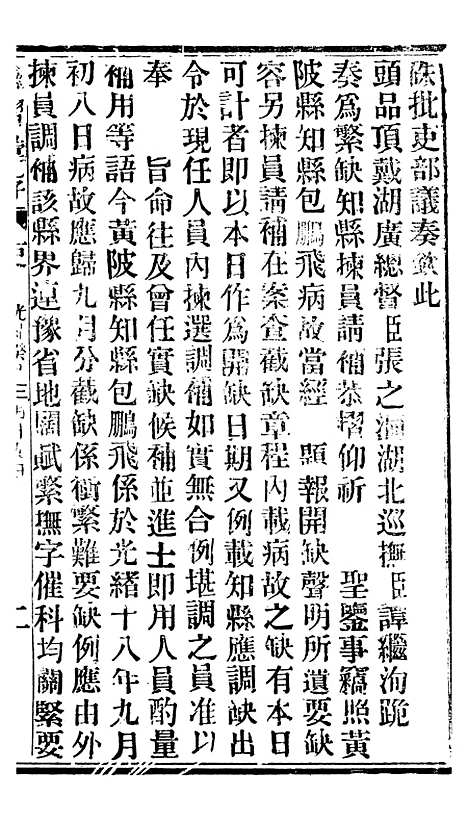 硃批吏部議奏欽此
頭品頂戴湖廣總督臣張之洞湖北巡撫臣譚繼洵跪
奏為繁缺知縣揀員請補恭摺仰祈 聖鑒事竊照黃
陂縣知縣包鵬飛病故當經 題報開缺聲明所遺要缺
容另揀員請補在案查截缺章程內載病故之缺有本日
可計者即以本日作為開缺日期又例載知縣應調缺出
令於現任人員內揀選調補如實無合例堪調之員准以
奉 旨命往及曾任實缺候補並進士即用人員酌量
補用等語今黃陂縣知縣包鵬飛係於光緒十八年九月
初八日病故應歸九月分截缺係衝繁難要缺例應由外
揀員調補該縣界連豫省地闊賦繁撫字催科均關緊要
二